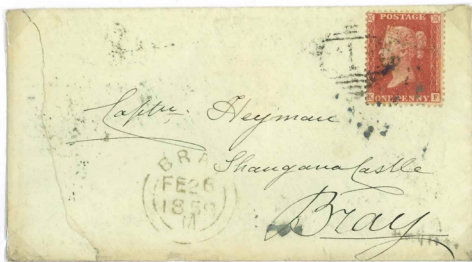 POSTAGE
ONE PENNY
Captn Heyman
Shangana Castle
Bray
BRA
FE 26
1859
M